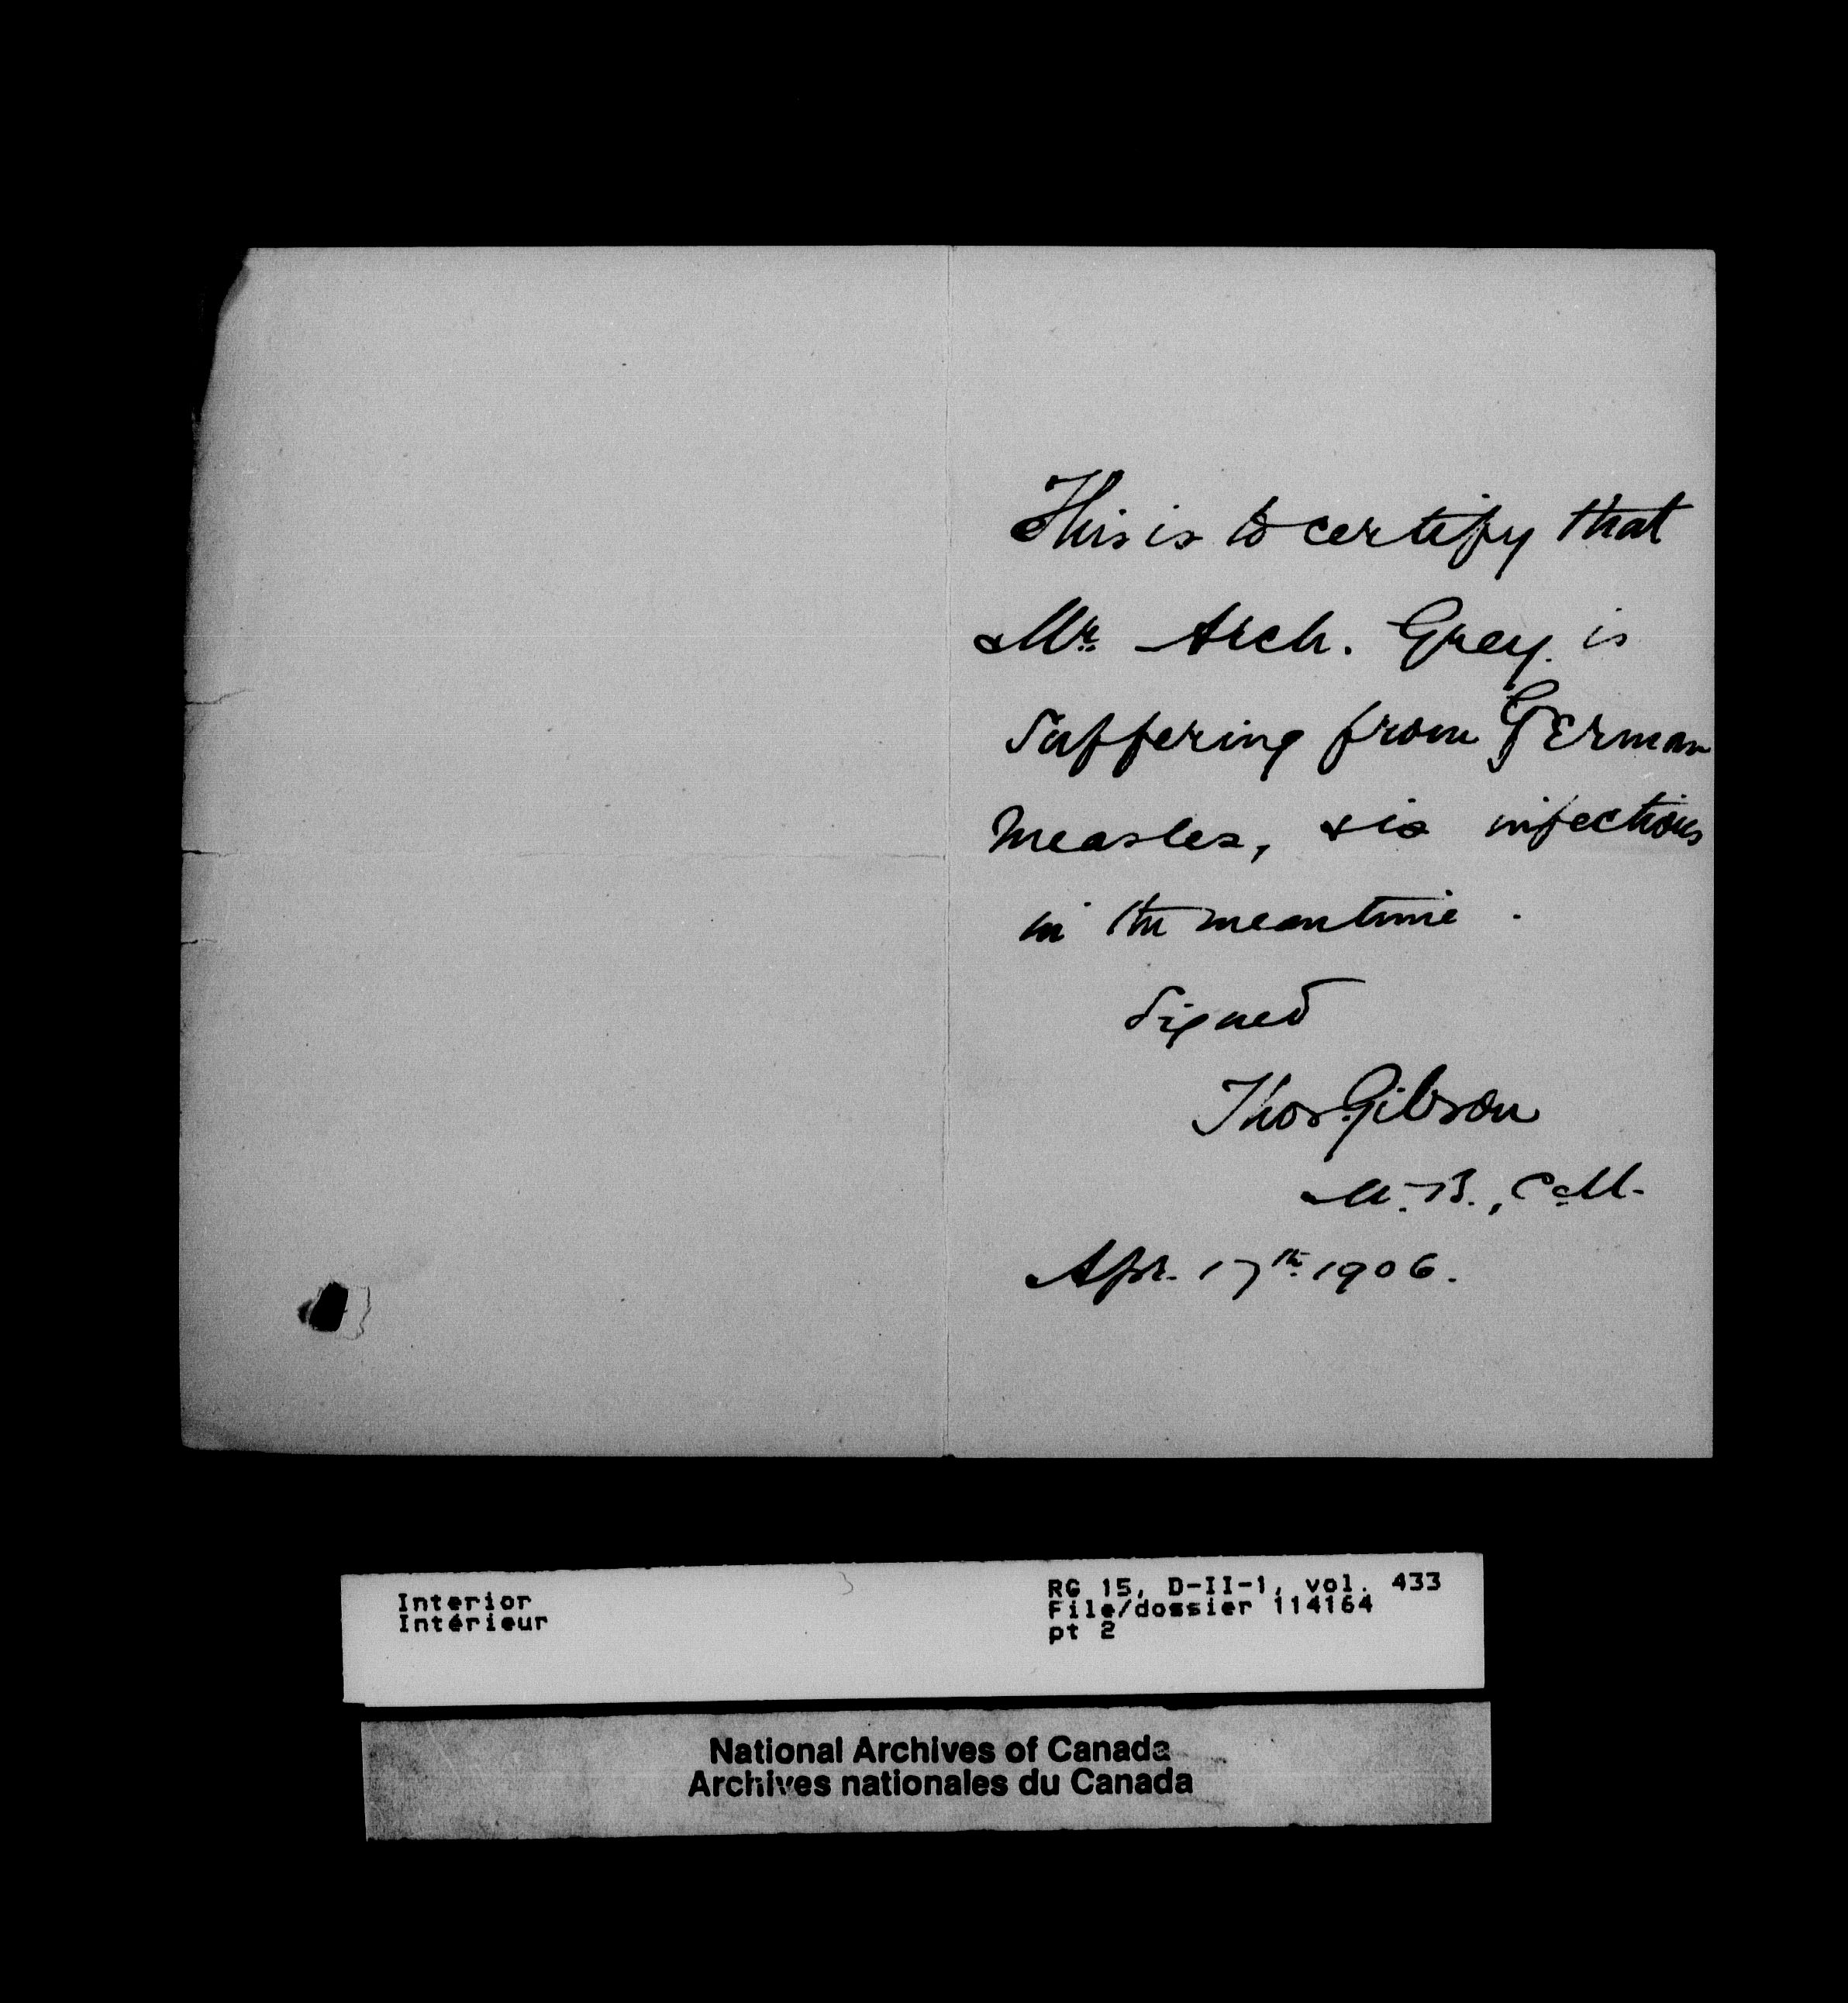 This is to certify that
Mr. Arch. Grey. is
Suffering from German
Measles, & is infectious
in the meantime.
Signed
Thos. Gibson
M.B., C.M.
Apr. 17th 1906.
3
Interior
Intérieur
RG 15, D-II-1, vol. 433
File/dossier 114164
pt 2
National Archives of Canada
Archives nationales du Canada